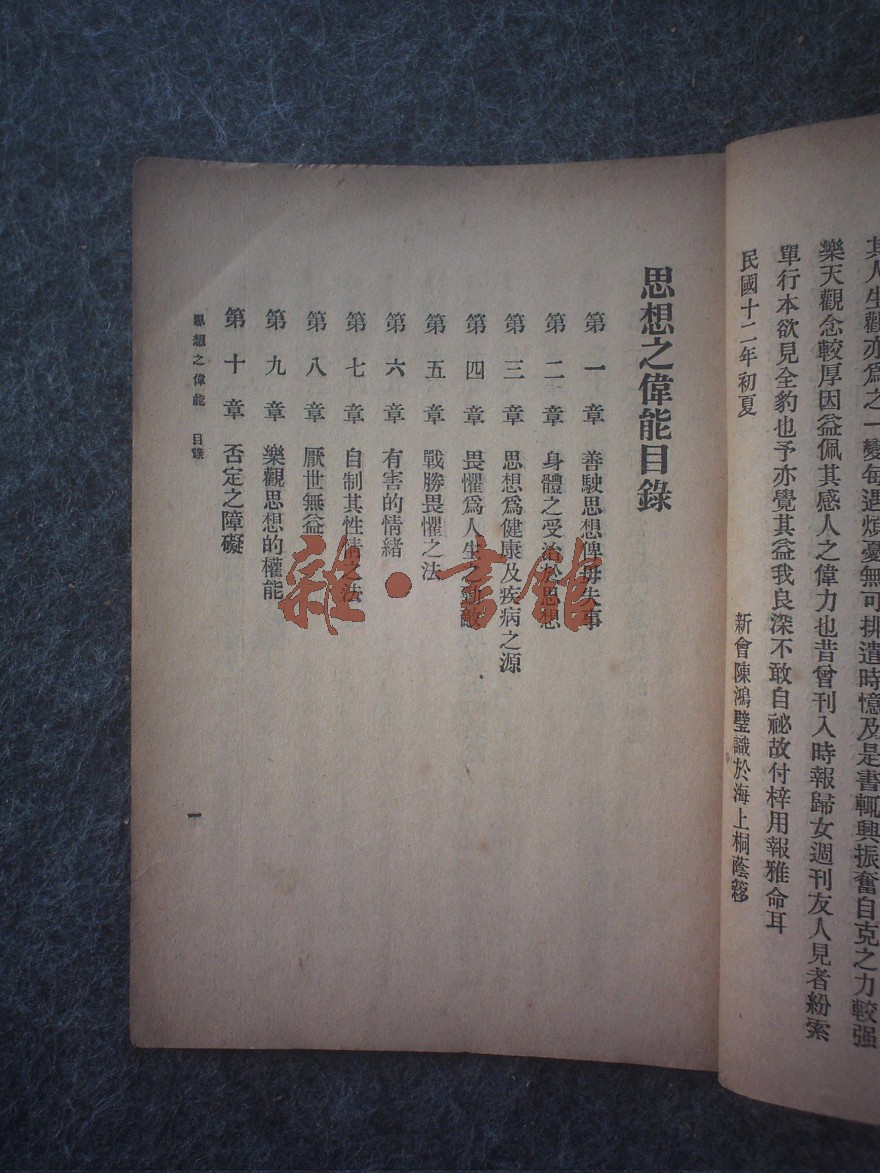 其人生觀亦爲之一變每遇煩憂無可排遣時憶及是書輒興振奮自克之力較强
樂天觀念較厚因益佩其感人之偉力也昔曾刊入時報歸女週刊友人見者紛索
單行本欲見全豹也予亦覺其益我良深不敢自祕故付梓用報雅命耳
民國十二年初夏 新會陳鴻璧識於海上桐蔭簃
思想之偉能目錄
第一章 善駛思想俾毋失事
第二章 身體之受治於思想
第三章 思想爲健康及疾病之源
第四章 畏懼爲人生之勁敵
第五章 戰勝畏懼之法
第六章 有害的情緒
第七章 自制其性情之法
第八章 厭世無益
第九章 樂觀思想的權能
第十章 否定之障礙
思想之偉能 目錄
一
雜·書館